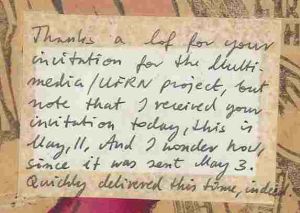 Thanks a lot for your
invitation for the Multi-
media/UFRN project, but
note that I received your
invitation today, this is
May, 11, And I wonder how,
since it was sent May 3.
Quickly delivered this time, indeed.